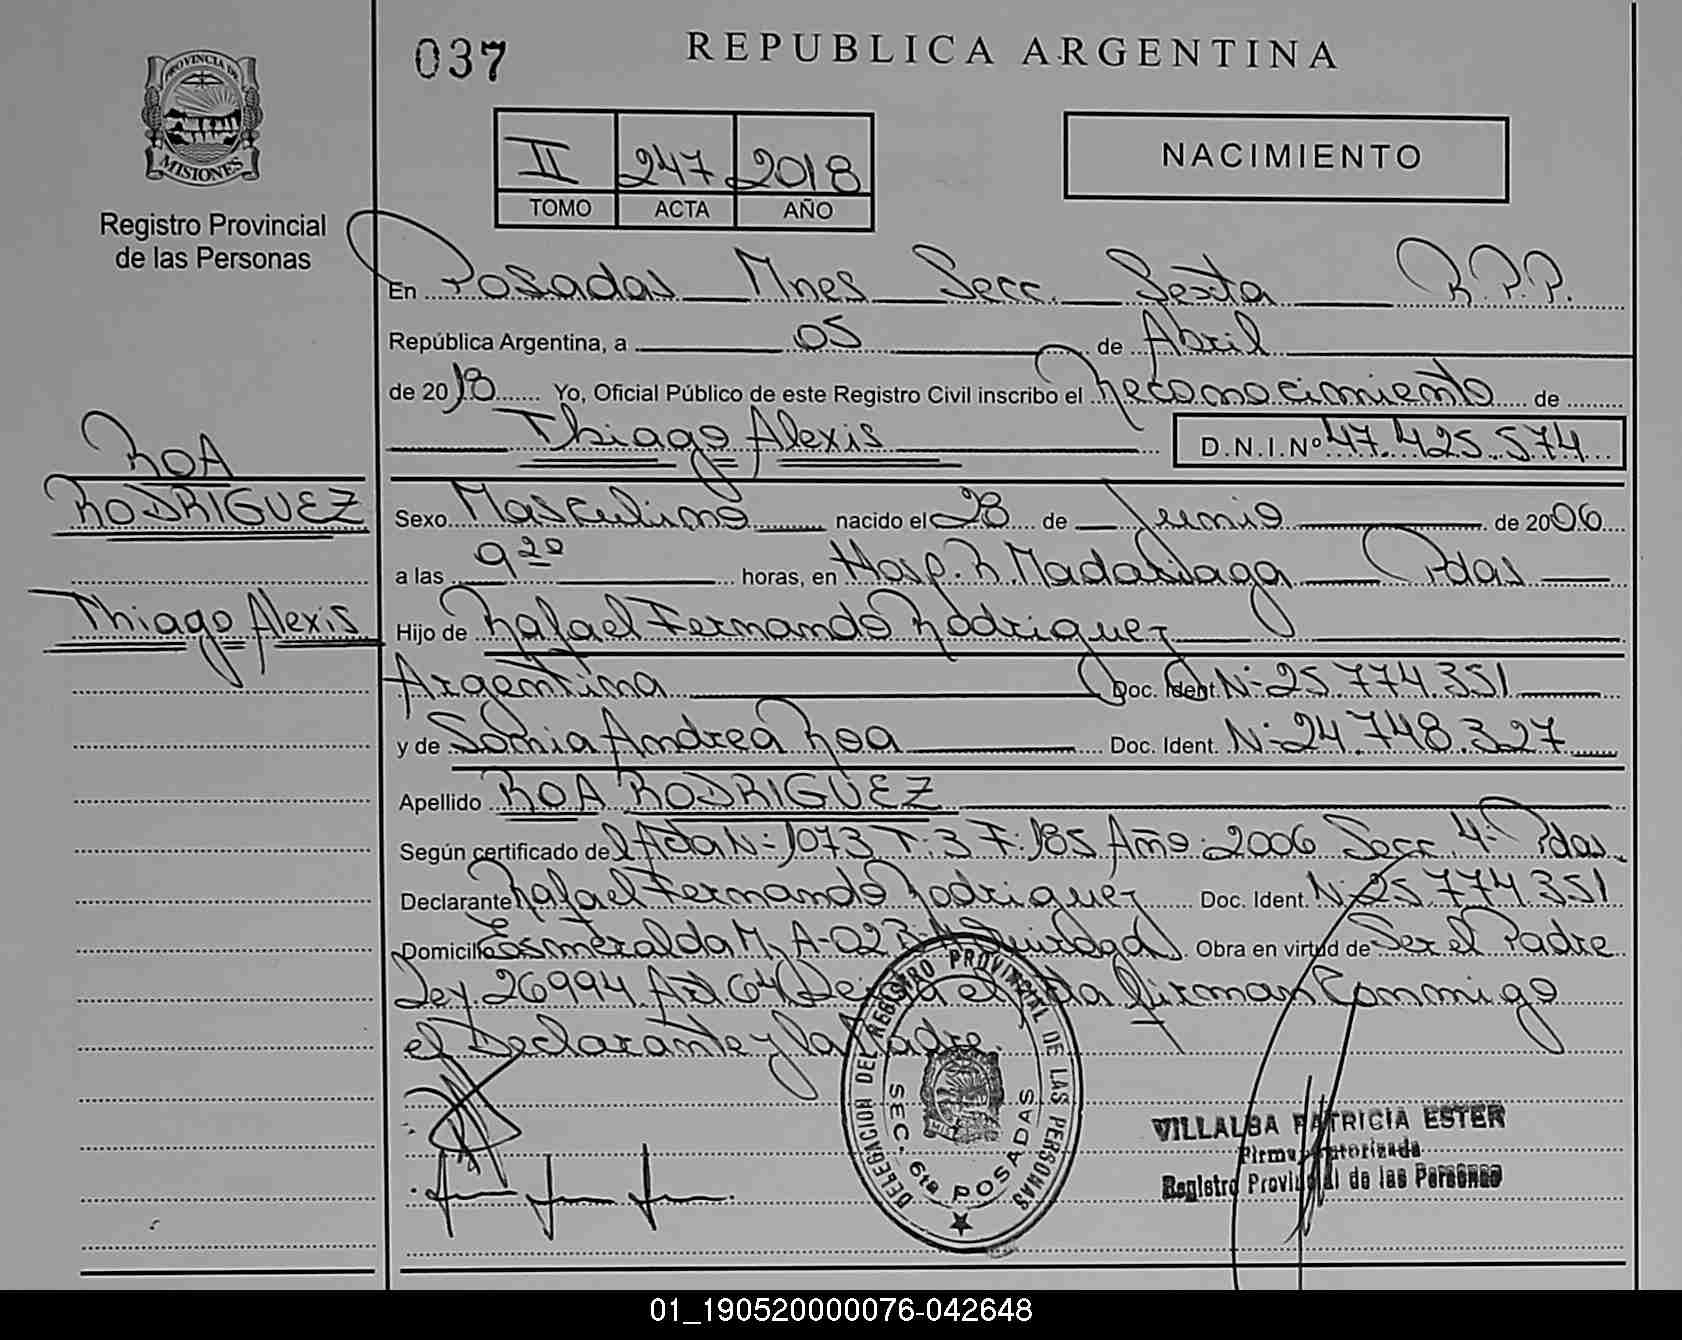 037
REPUBLICA ARGENTINA
PROVINCIA DE
MISIONES
Registro Provincial
de las Personas
II 247 2018
TOMO ACTA AÑO
NACIMIENTO
En Posadas Mnes Secc. Sexta R.P.P.
República Argentina, a 05 de Abril
de 2018 Yo, Oficial Público de este Registro Civil inscribo el Reconocimiento de
Thiago Alexis D.N.I.Nº 47.425.574
ROA
RODRIGUEZ
Thiago Alexis
Sexo Masculino nacido el 28 de Junio de 2006
a las 9 20 horas, en Hosp. R. Madariaga Pdas
Hijo de Rafael Fernando Rodriguez
Argentina Doc. Ident. Nº 25.774.351
y de Sonia Andrea Roa Doc. Ident. Nº 24.748.327
Apellido ROA RODRIGUEZ
Según certificado del Acta Nº 1073 T: 3 F: 185 Año: 2006 Secc. 4º Pdas.
Declarante Rafael Fernando Rodriguez Doc. Ident. Nº 25.774.351
Domicilio Esmeralda M. A-02 Obra en virtud de Ser el Padre
Ley 26994 Art 64 firman Conmigo
el Declarante y la Madre.
DELEGACION DEL REGISTRO PROVINCIAL DE LAS PERSONAS
SEC. 6ta POSADAS
VILLALBA PATRICIA ESTER
Firma Autorizada
Registro Provincial de las Personas
01_190520000076-042648